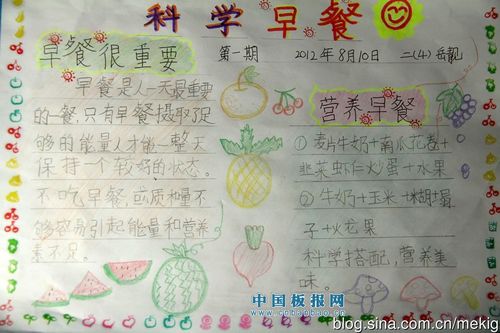 科学早餐
早餐很重要
第一期 2012年8月10日 二(4)岳靓
早餐是人一天最重要
的一餐,只有早餐摄取足
够的能量人才能一整天
保持一个较好的状态。
不吃早餐或质和量不
够容易引起能量和营养
素不足。
营养早餐
①麦片牛奶+南瓜花卷+
韭菜虾仁炒蛋+水果
②牛奶+玉米+
子+火龙果
科学搭配,营养美
味。
中国板报网
www.cnbanbao.com
blog.sina.com.cn/mekig